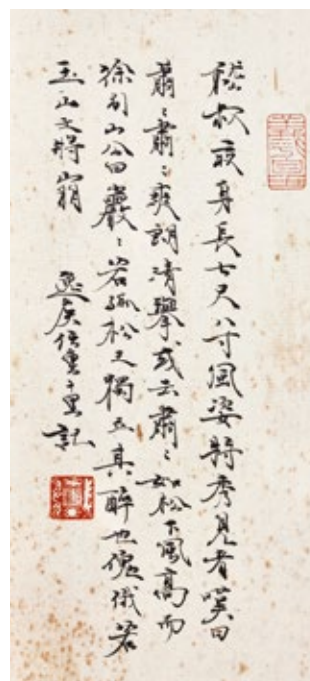 嵇叔夜身長七尺八寸風姿特秀見者嘆曰
蕭〻肅〻爽朗清舉或云肅〻如松下風高而
徐引山公曰巖〻若孤松之獨立其醉也傀俄若
玉山之將崩 記